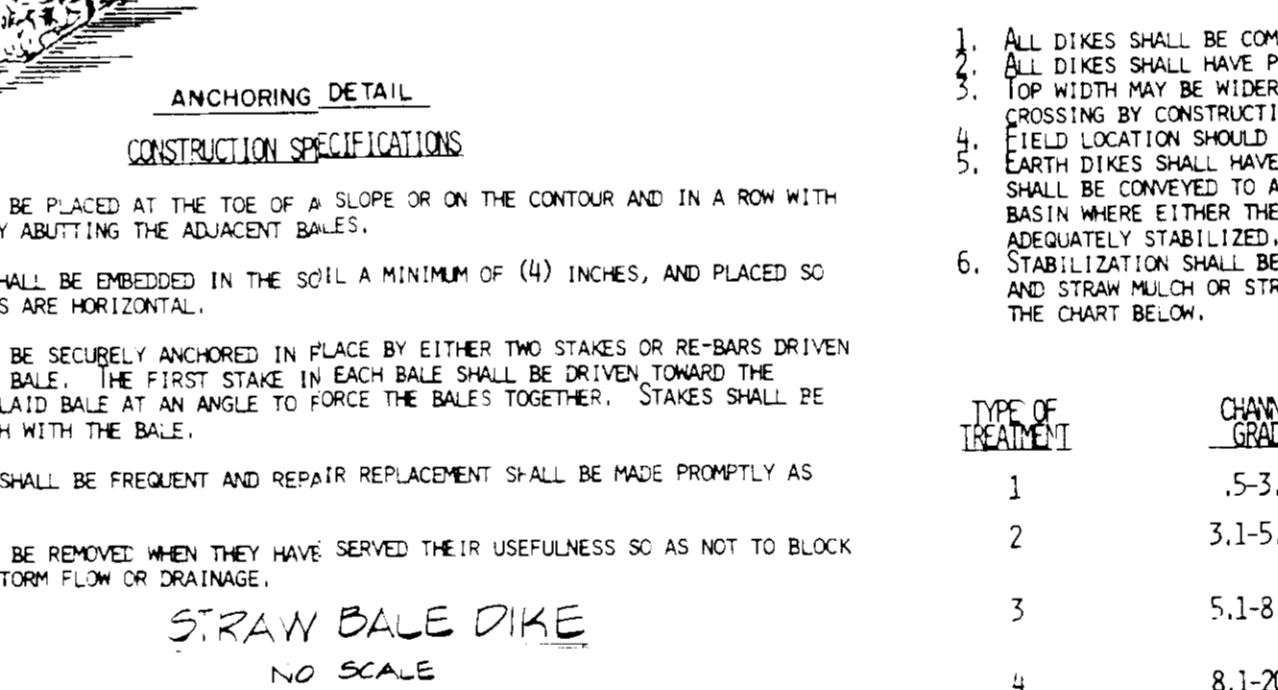 ANCHORING DETAIL
CONSTRUCTION SPECIFICATIONS
BE PLACED AT THE TOE OF A SLOPE OR ON THE CONTOUR AND IN A ROW WITH
ABUTTING THE ADJACENT BALES.
HALL BE EMBEDDED IN THE SOIL A MINIMUM OF (4) INCHES, AND PLACED SO
S ARE HORIZONTAL.
BE SECURELY ANCHORED IN PLACE BY EITHER TWO STAKES OR RE-BARS DRIVEN
BALE. THE FIRST STAKE IN EACH BALE SHALL BE DRIVEN TOWARD THE
LAID BALE AT AN ANGLE TO FORCE THE BALES TOGETHER. STAKES SHALL BE
H WITH THE BALE.
SHALL BE FREQUENT AND REPAIR REPLACEMENT SHALL BE MADE PROMPTLY AS
BE REMOVED WHEN THEY HAVE SERVED THEIR USEFULNESS SO AS NOT TO BLOCK
TORM FLOW OR DRAINAGE.
STRAW BALE DIKE
NO SCALE
1. ALL DIKES SHALL BE COM
2. ALL DIKES SHALL HAVE P
3. TOP WIDTH MAY BE WIDER
CROSSING BY CONSTRUCTI
4. FIELD LOCATION SHOULD
5. EARTH DIKES SHALL HAVE
SHALL BE CONVEYED TO A
BASIN WHERE EITHER THE
ADEQUATELY STABILIZED.
6. STABILIZATION SHALL BE
AND STRAW MULCH OR STR
THE CHART BELOW.
TYPE OF CHANN
TREATMENT GRAD
1 .5-3.
2 3.1-5.
3 5.1-8
4 8.1-20